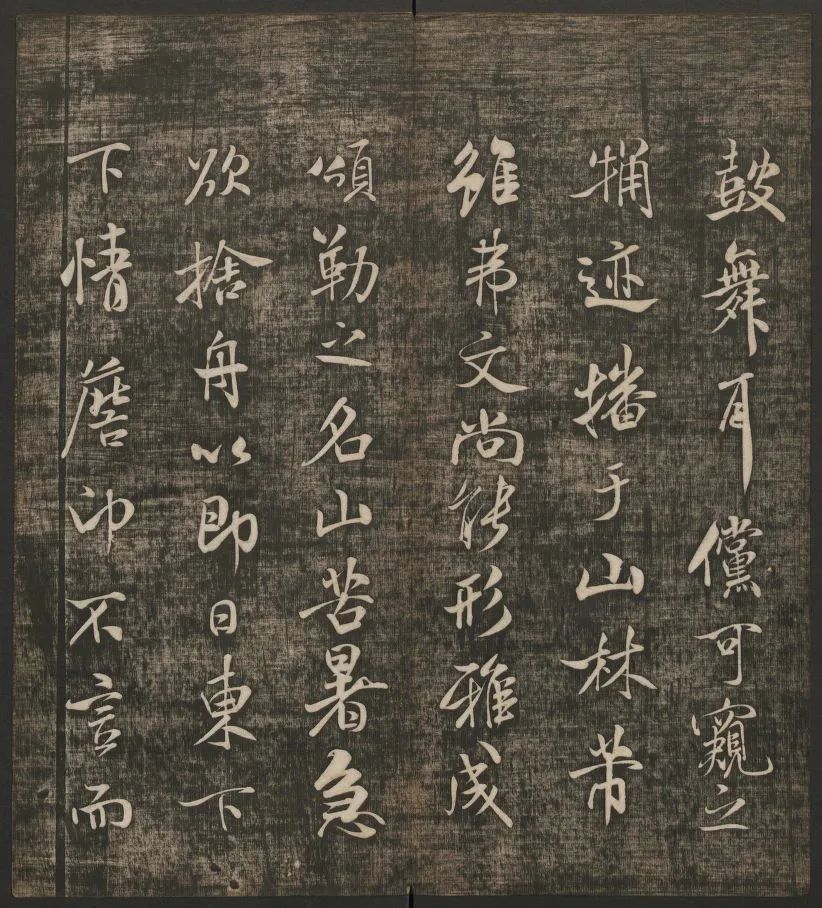 鼓舞耳儻可窺之
迹播于山林芾
雖弗文尚能形雅成
頌勒之名山苦暑急
欲捨舟以即日東下
下情瞻仰不言而